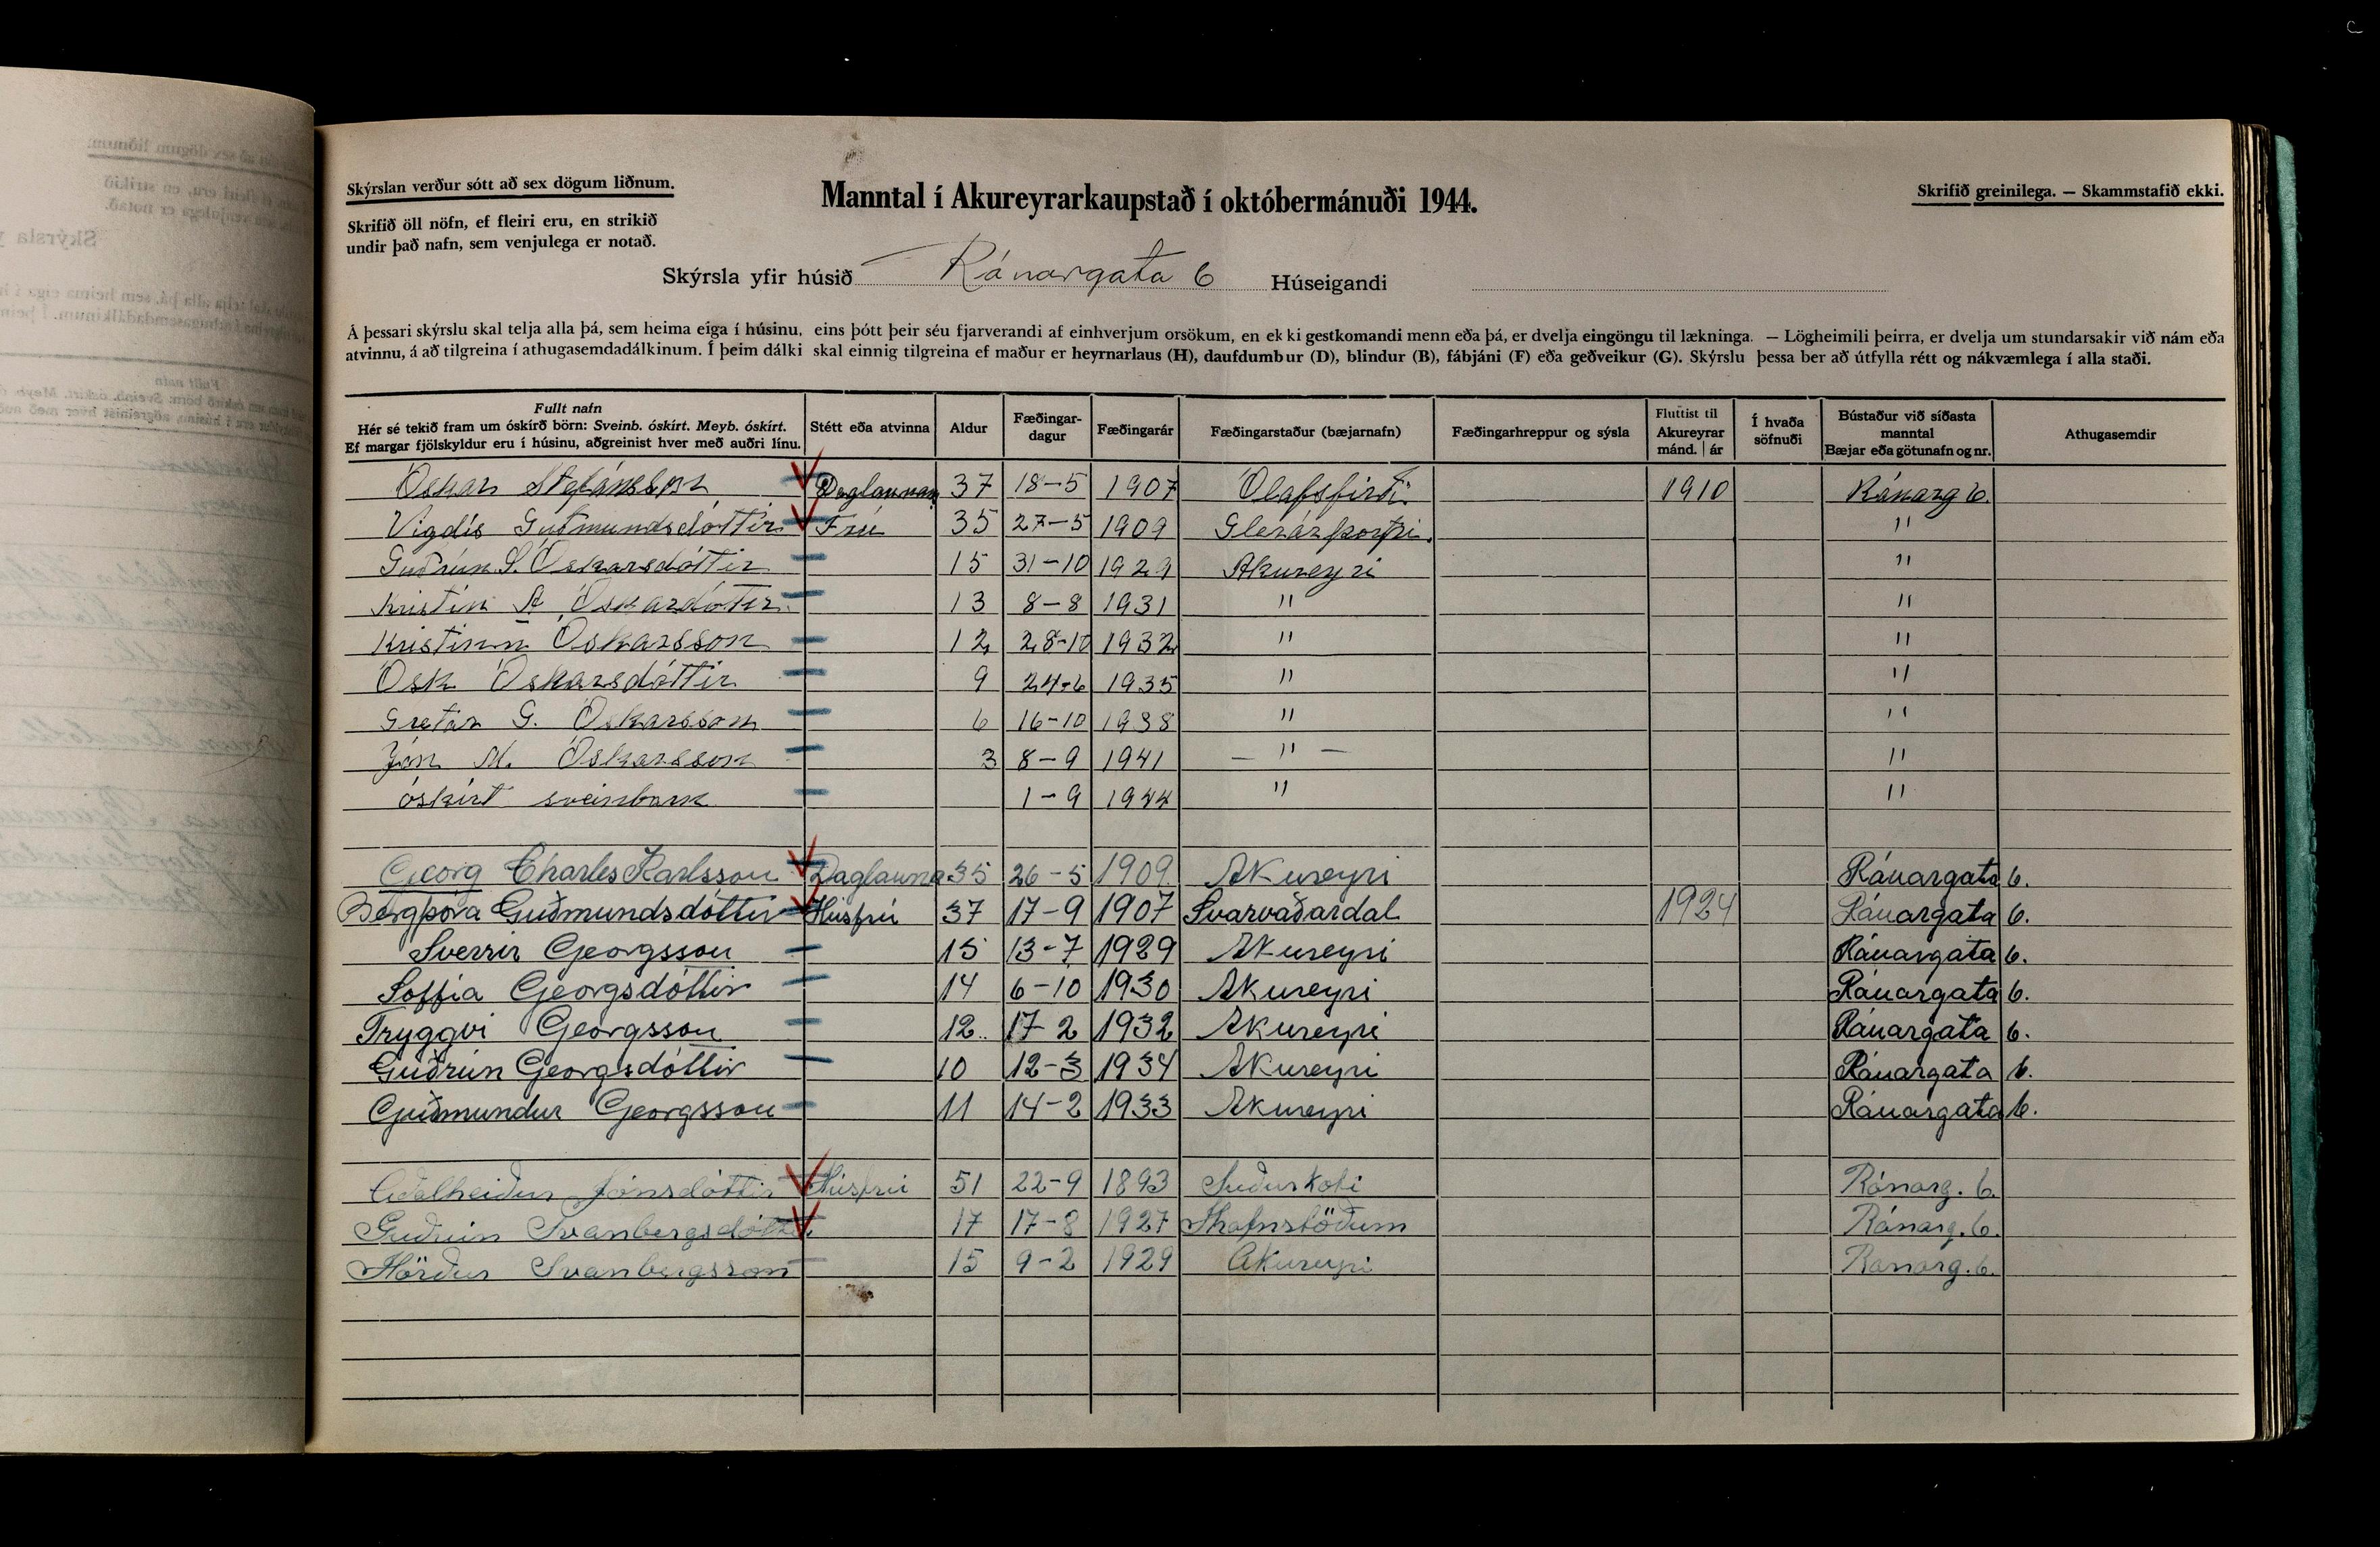 Skýrslan verður sótt að sex dögum liðnum.
Skrifið öll nöfn, ef fleiri eru, en strikið
undir það nafn, sem venjulega er notað.
Manntal í Akureyrarkaupstað í októbermánuði 1944.
Skrifið greinilega. — Skammstafið ekki.
Skýrsla yfir húsið Ránargata 6 Húseigandi
Á þessari skýrslu skal telja alla þá, sem heima eiga í húsinu, eins þótt þeir séu fjarverandi af einhverjum orsökum, en ekki gestkomandi menn eða þá, er dvelja eingöngu til lækninga. — Lögheimili þeirra, er dvelja um stundarsakir við nám eða
atvinnu, á að tilgreina í athugasemdadálkinum. Í þeim dálki skal einnig tilgreina ef maður er heyrnarlaus (H), daufdumbur (D), blindur (B), fábjáni (F) eða geðveikur (G). Skýrslu þessa ber að útfylla rétt og nákvæmlega í alla staði.
Fullt nafn
Hér sé tekið fram um óskírð börn: Sveinb. óskírt. Meyb. óskírt.
Ef margar fjölskyldur eru í húsinu, aðgreinist hver með auðri línu.
Stétt eða atvinna
Aldur
Fæðingar-
dagur
Fæðingarár
Fæðingarstaður (bæjarnafn)
Fæðingarhreppur og sýsla
Fluttist til
Akureyrar
mánd. | ár
Í hvaða
söfnuði
Bústaður við síðasta
manntal
Bæjar eða götunafn og nr.
Athugasemdir
Óskar Stefánsson Daglaunam 37 18-5 1907 Ólafsfirði 1910 Ránarg 6.
Vigdís Guðmundsdóttir Frú 35 27-5 1909 Glerárþorpi. "
Guðrún S. Óskarsdóttir 15 31-10 1929 Akureyri "
Kristín A Óskardóttir 13 8-8 1931 " "
Kristinn Óskarsson 12 28-10 1932 " "
Ósk Óskarsdóttir 9 24-6 1935 " "
Gretar G. Óskarsson 6 16-10 1938 " "
Jón M. Óskarsson 3 8-9 1941 — " — "
óskírt sveinbarn 1-9 1944 " "
Georg Charles Karlsson Daglauna 35 26-5 1909 Akureyri Ránargata 6.
Bergþóra Guðmundsdóttir Húsfrú 37 17-9 1907 Svarvaðardal 1924 Ránargata 6.
Sverrir Georgsson 15 13-7 1929 Akureyri Ránargata 6.
Soffía Georgsdóttir 14 6-10 1930 Akureyri Ránargata 6.
Tryggvi Georgsson 12 17-2 1932 Akureyri Ránargata 6.
Guðrún Georgsdóttir 10 12-3 1934 Akureyri Ránargata 6.
Guðmundur Georgsson 11 14-2 1933 Akureyri Ránargata 6.
Aðalheiður Jónsdóttir Húsfrú 51 22-9 1893 Suðurkoti Ránarg. 6.
Guðrún Svanbergsdóttir 17 17-8 1927 Ránarg. 6.
Hörður Svanbergsson 15 9-2 1929 Akureyri Ranarg. 6.